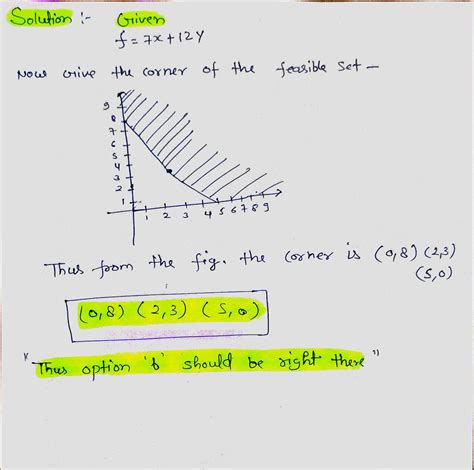 Solution :- Given
f = 7x + 12y
Now Give the corner of the feasible set -
9
8
7
6
5
4
3
2
1
1 2 3 4 5 6 7 8 9
Thus from the fig. the corner is (0,8) (2,3)
(5,0)
(0,8) (2,3) (5,0)
"Thus option 'b' should be right there"